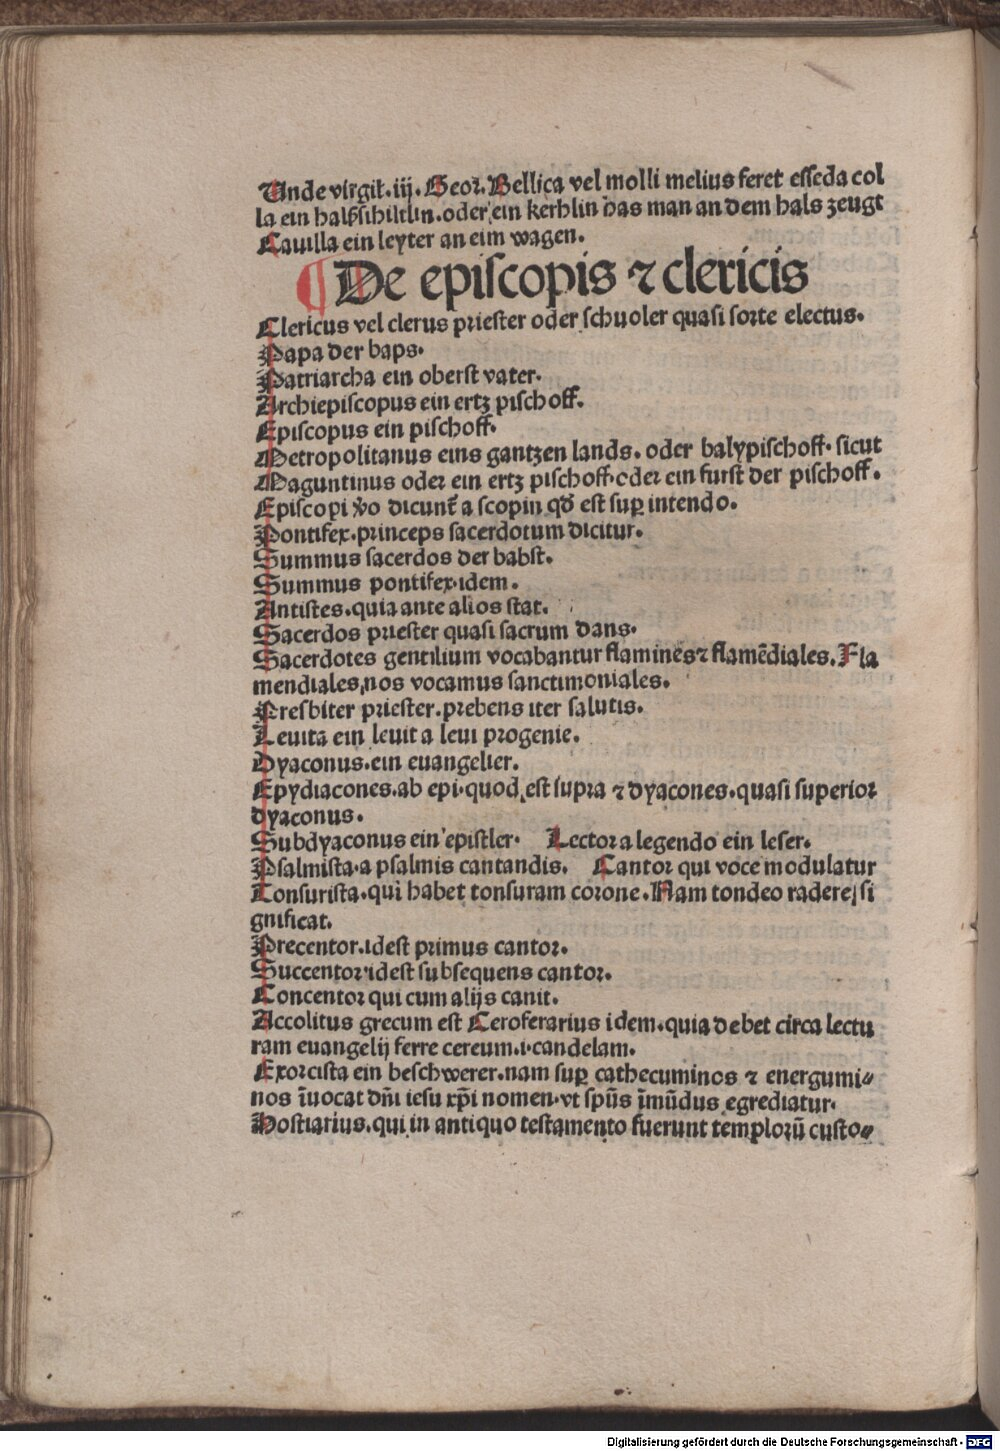 Unde virgil. iij. Geor. Bellica vel molli melius feret esseda col
la ein halßsihiltlin. oder ein kerhlin das man an dem hals zeugt
Cauilla ein leyter an eim wagen.
¶ De episcopis ⁊ clericis
Clericus vel clerus priester oder schuoler quasi sorte electus.
Papa der baps.
Patriarcha ein oberst vater.
Archiepiscopus ein ertz pischoff.
Episcopus ein pischoff.
Metropolitanus eins gantzen lands. oder balypischoff. sicut
Maguntinus oder ein ertz pischoff. oder ein furst der pischoff.
Episcopi v̄o dicunt̄ a scopin qđ est sup̱ intendo.
Pontifex. princeps sacerdotum dicitur.
Summus sacerdos der babst.
Summus pontifex. idem.
Antistes. quia ante alios stat.
Sacerdos priester quasi sacrum dans.
Sacerdotes gentilium vocabantur flamines ⁊ flamēdiales. Fla
mendiales, nos vocamus sanctimoniales.
Presbiter priester. prebens iter salutis.
Leuita ein leuit a leui progenie.
Dyaconus. ein euangelier.
Epydiacones. ab epi. quod est supra ⁊ dyacones. quasi superior
dyaconus.
Subdyaconus ein epistler. Lector a legendo ein leser.
Psalmista. a psalmis cantandis. Cantor qui voce modulatur
Tonsurista. qui habet tonsuram corone. Nam tondeo radere, si
gnificat.
Precentor. idest primus cantor.
Succentor idest subsequens cantor.
Concentor qui cum alijs canit.
Accolitus grecum est Ceroferarius idem. quia debet circa lectu
ram euangelij ferre cereum. i. candelam.
Exorcista ein beschwerer. nam sup̱ cathecuminos ⁊ energumi⸗
nos īuocat dn̄i iesu xp̄i nomen. vt spūs īmūdus egrediatur.
Hostiarius. qui in antiquo testamento fuerunt templorū custo⸗
Digitalisierung gefördert durch die Deutsche Forschungsgemeinschaft - DFG